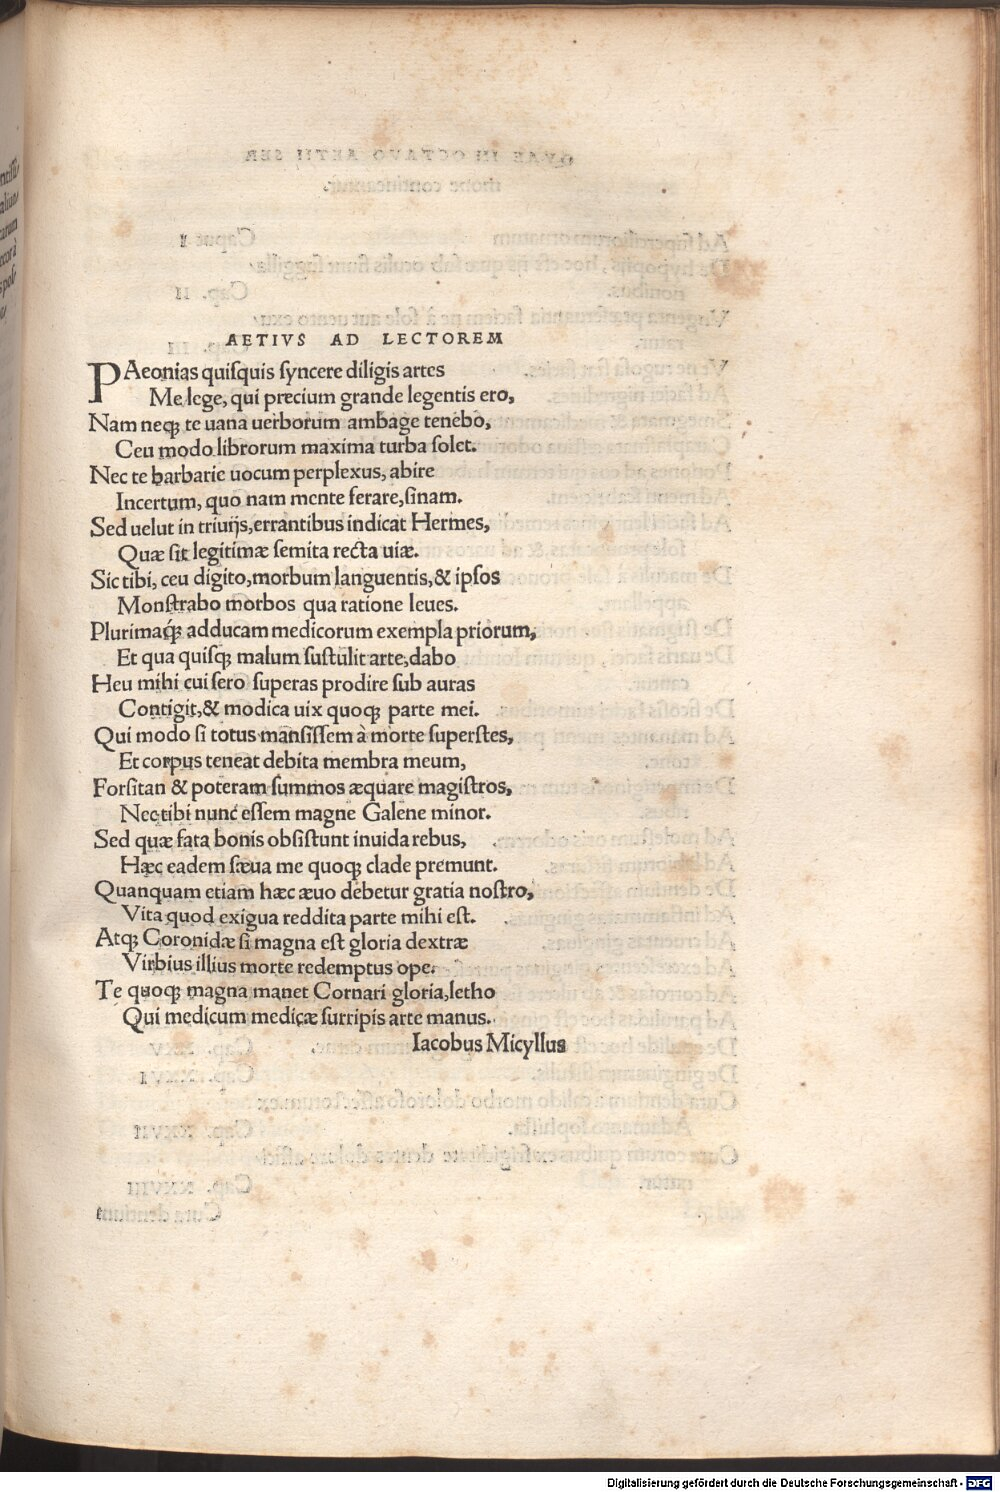 AETIVS AD LECTOREM
PAeonias quisquis syncere diligis artes
Me lege, qui precium grande legentis ero,
Nam neq; te uana uerborum ambage tenebo,
Ceu modo librorum maxima turba solet.
Nec te barbarie uocum perplexus, abire
Incertum, quo nam mente ferare, sinam.
Sed uelut in triuijs, errantibus indicat Hermes,
Quæ sit legitimæ semita recta uiæ.
Sic tibi, ceu digito, morbum languentis, & ipsos
Monstrabo morbos qua ratione leues.
Plurimaq́; adducam medicorum exempla priorum,
Et qua quisq; malum sustulit arte, dabo
Heu mihi cui sero superas prodire sub auras
Contigit, & modica uix quoq; parte mei.
Qui modo si totus mansissem à morte superstes,
Et corpus teneat debita membra meum,
Forsitan & poteram summos æquare magistros,
Nec tibi nunc essem magne Galene minor.
Sed quæ fata bonis obsistunt inuida rebus,
Hæc eadem sæua me quoq; clade premunt.
Quanquam etiam hæc æuo debetur gratia nostro,
Vita quod exigua reddita parte mihi est.
Atq; Coronidæ si magna est gloria dextræ
Virbius illius morte redemptus ope.
Te quoq; magna manet Cornari gloria, letho
Qui medicum medicæ surripis arte manus.
Iacobus Micyllus
Digitalisierung gefördert durch die Deutsche Forschungsgemeinschaft - DFG